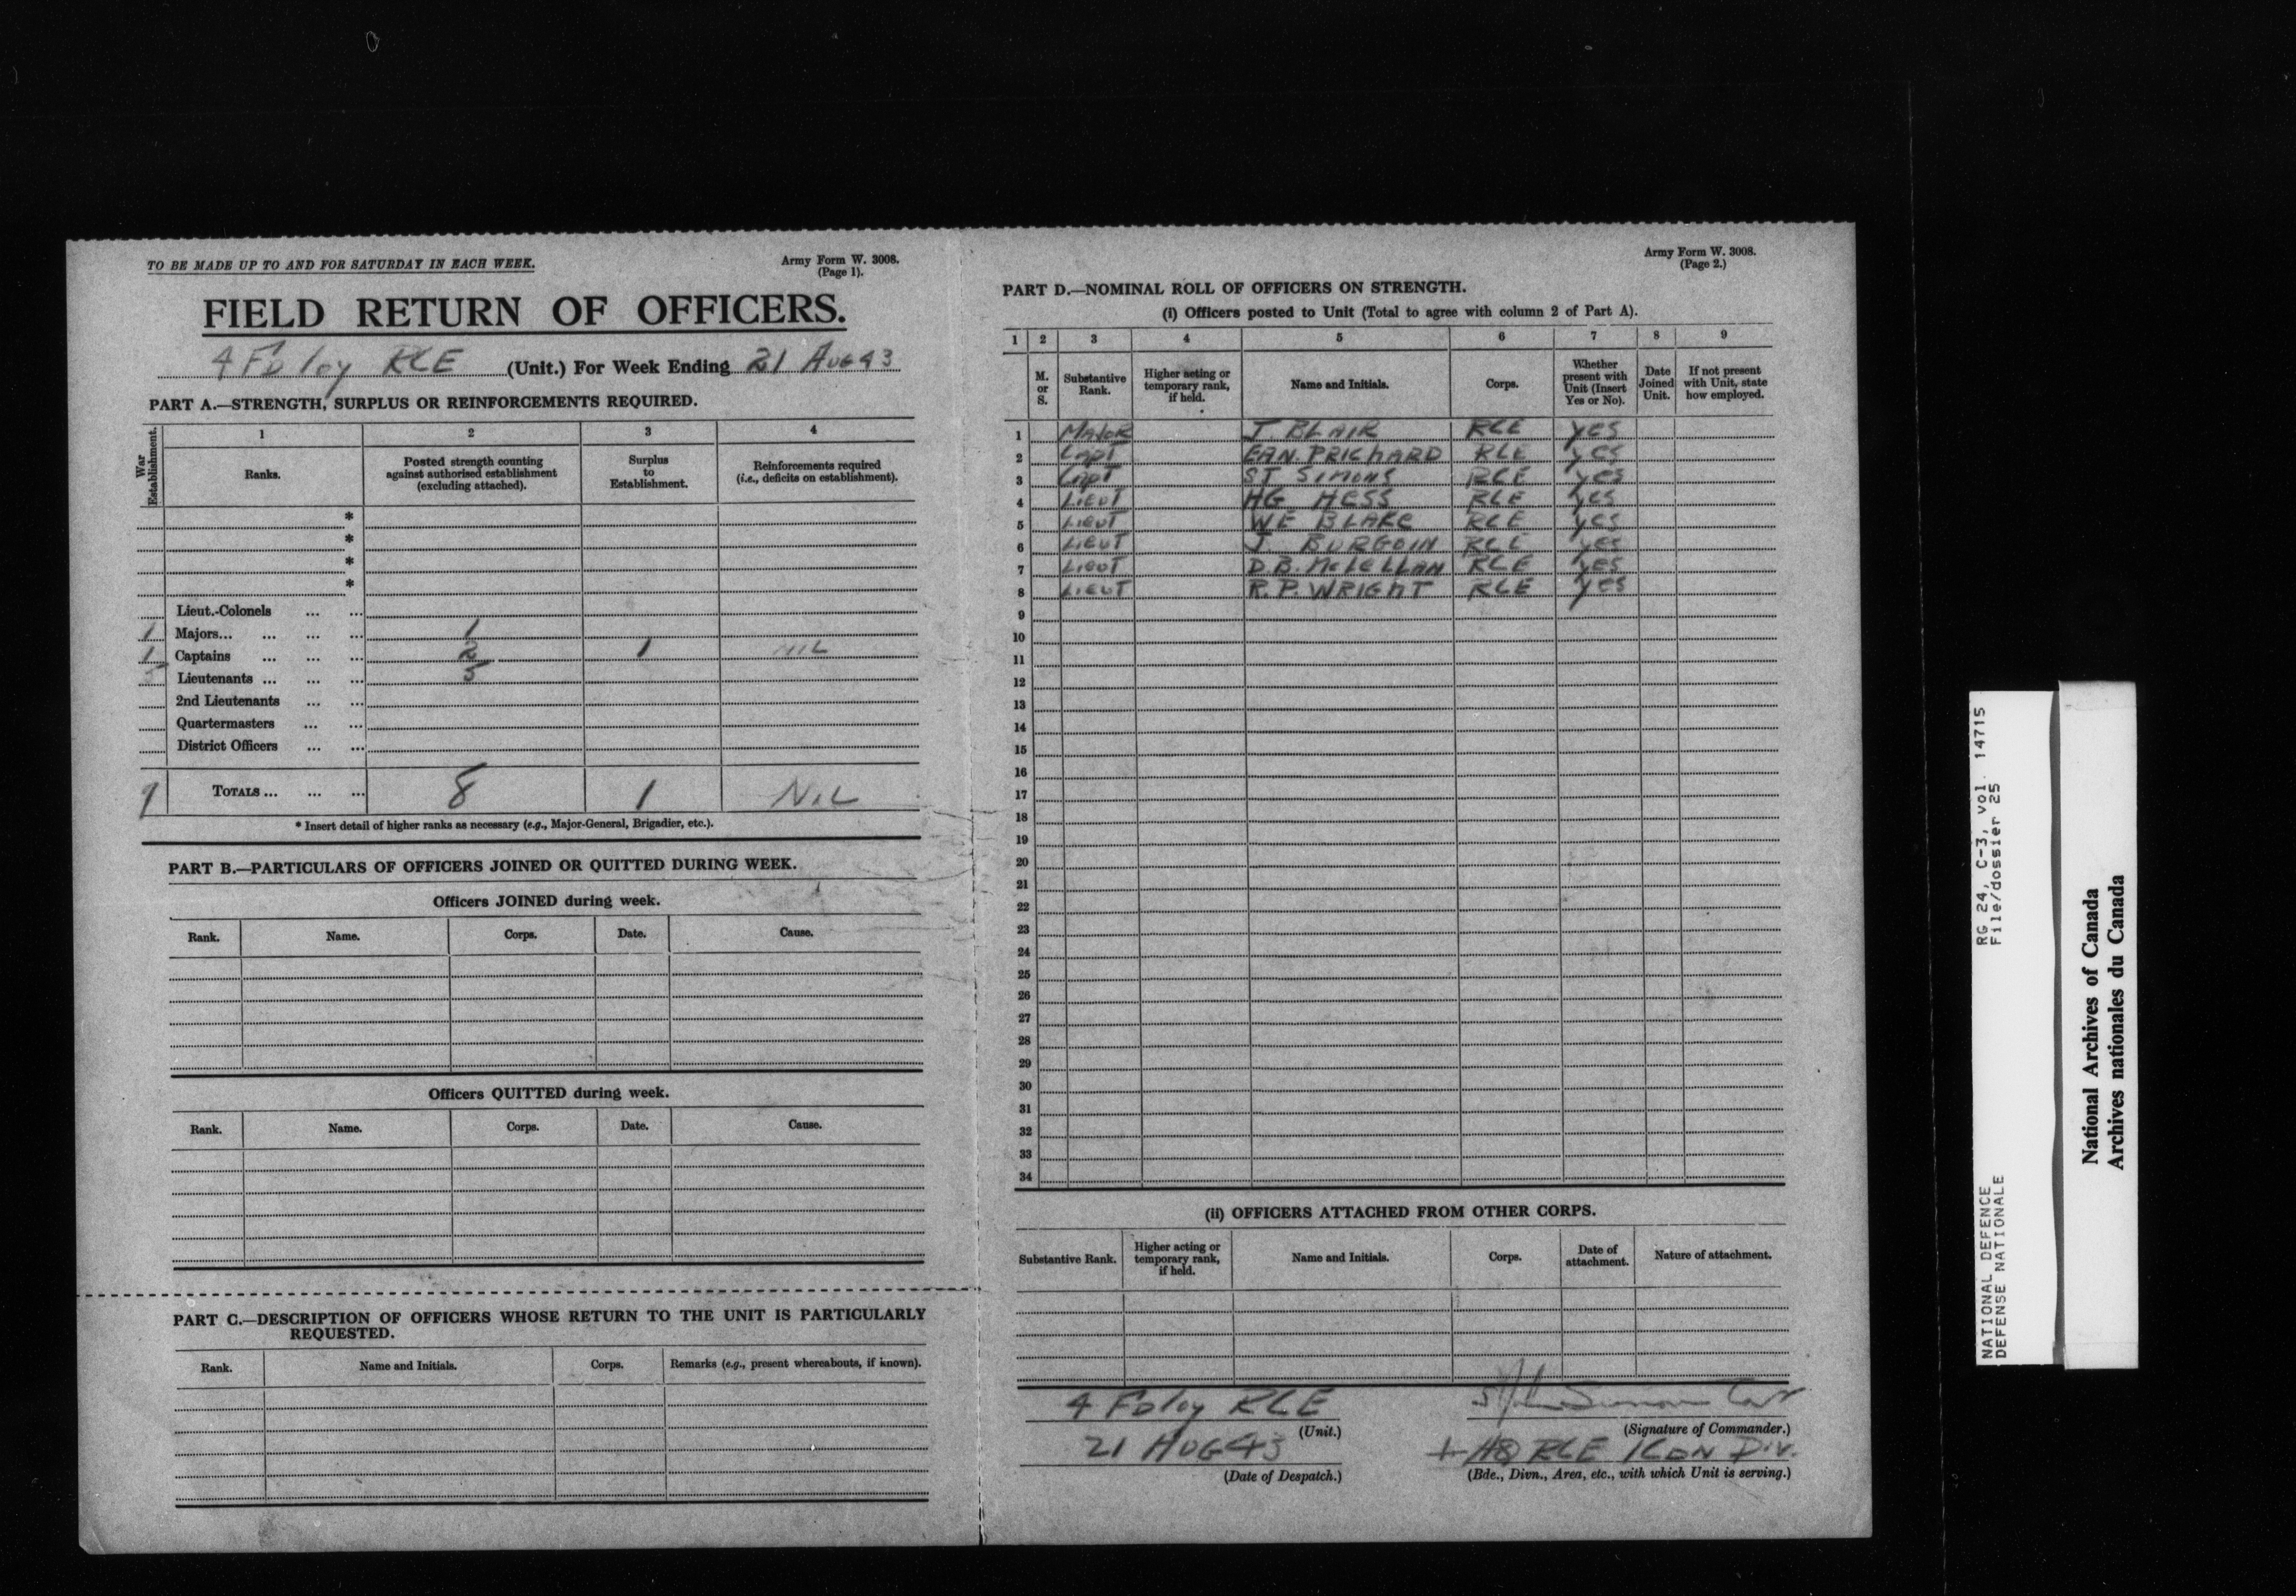 TO BE MADE UP TO AND FOR SATURDAY IN EACH WEEK.
Army Form W. 3008.
(Page 1).
FIELD RETURN OF OFFICERS.
4 Fd Coy RCE (Unit.) For Week Ending 21 Aug 43
PART A.—STRENGTH, SURPLUS OR REINFORCEMENTS REQUIRED.
War Establishment.
1 2 3 4
Ranks.
Posted strength counting against authorised establishment (excluding attached).
Surplus to Establishment.
Reinforcements required (i.e., deficits on establishment).
*
*
*
*
Lieut.-Colonels ... ...
1 Majors... ... ... ... 1
1 Captains ... ... ... 2 1 NIL
5 Lieutenants ... ... ... 5
2nd Lieutenants ... ...
Quartermasters ... ...
District Officers ... ...
7 TOTALS ... ... ... 8 1 NIL
* Insert detail of higher ranks as necessary (e.g., Major-General, Brigadier, etc.).
PART B.—PARTICULARS OF OFFICERS JOINED OR QUITTED DURING WEEK.
Officers JOINED during week.
Rank. Name. Corps. Date. Cause.
Officers QUITTED during week.
Rank. Name. Corps. Date. Cause.
PART C.—DESCRIPTION OF OFFICERS WHOSE RETURN TO THE UNIT IS PARTICULARLY
REQUESTED.
Rank. Name and Initials. Corps. Remarks (e.g., present whereabouts, if known).
Army Form W. 3008.
(Page 2.)
PART D.—NOMINAL ROLL OF OFFICERS ON STRENGTH.
(i) Officers posted to Unit (Total to agree with column 2 of Part A).
1 2 3 4 5 6 7 8 9
M. or S.
Substantive Rank.
Higher acting or temporary rank, if held.
Name and Initials.
Corps.
Whether present with Unit (Insert Yes or No).
Date Joined Unit.
If not present with Unit, state how employed.
1 Major J. BLAIR RCE YES
2 Capt EAN. PRICHARD RCE YES
3 Capt ST SIMONS RCE YES
4 Lieut HG HESS RCE YES
5 Lieut WE BLAKE RCE YES
6 Lieut J. BURGOIN RCE YES
7 Lieut D.B. McLELLAN RCE YES
8 Lieut R.P. WRIGHT RCE YES
9
10
11
12
13
14
15
16
17
18
19
20
21
22
23
24
25
26
27
28
29
30
31
32
33
34
(ii) OFFICERS ATTACHED FROM OTHER CORPS.
Substantive Rank.
Higher acting or temporary rank, if held.
Name and Initials.
Corps.
Date of attachment.
Nature of attachment.
4 Fd Coy RCE
(Unit.)
(Signature of Commander.)
21 AUG 43
(Date of Despatch.)
HQ RCE 1 CDN Div.
(Bde., Divn., Area, etc., with which Unit is serving.)
NATIONAL DEFENCE RG 24, C-3, vol. 14715
DEFENSE NATIONALE File/dossier 25
National Archives of Canada
Archives nationales du Canada